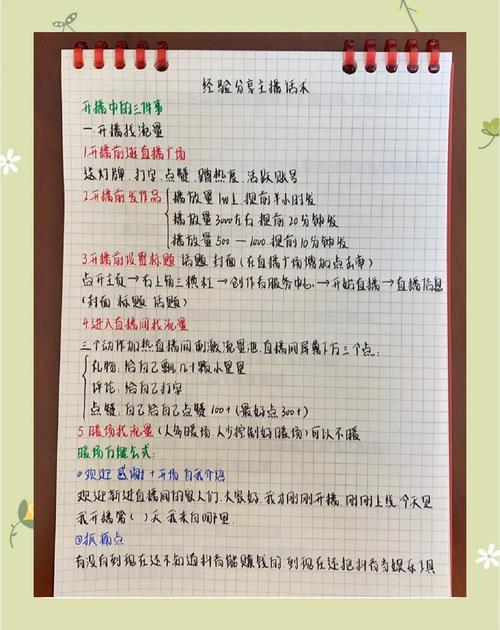 经验分享主播话术
开播中的三件事
一.开播找流量
1.开播前逛直播广场
送灯牌.打字.点赞.蹭热度.活跃账号
2.开播前发作品
播放量1w上.提前半小时发
播放量3000左右提前20分钟发
播放量500—1000提前10分钟发
3.开播前设置标题 话题 封面(在直播广场增加点击率)
点开主页→右上角三横杠→创作者服务中心→开始直播→直播信息
(封面 标题 话题)
4.进入直播间找流量
三个动作加热直播间.刺激流量池.直播间屏幕下方三个点:
礼物:给自己飘几十颗小星星
评论:给自己打字
点赞:自己给自己点赞100+(最好点300+)
5.暖场找流量(人多暖场.人少控制好暖场)可以不暖
暖场万能公式:
①欢迎 感谢+开场 自我介绍
欢迎新进直播间的家人们.大家好.我才刚刚开播.刚刚上线.今天是
我开播第( )天 我来自哪里.
②抓痛点
有没有到现在还不知道抖音能赚钱的 到现在还把抖音当娱乐工具